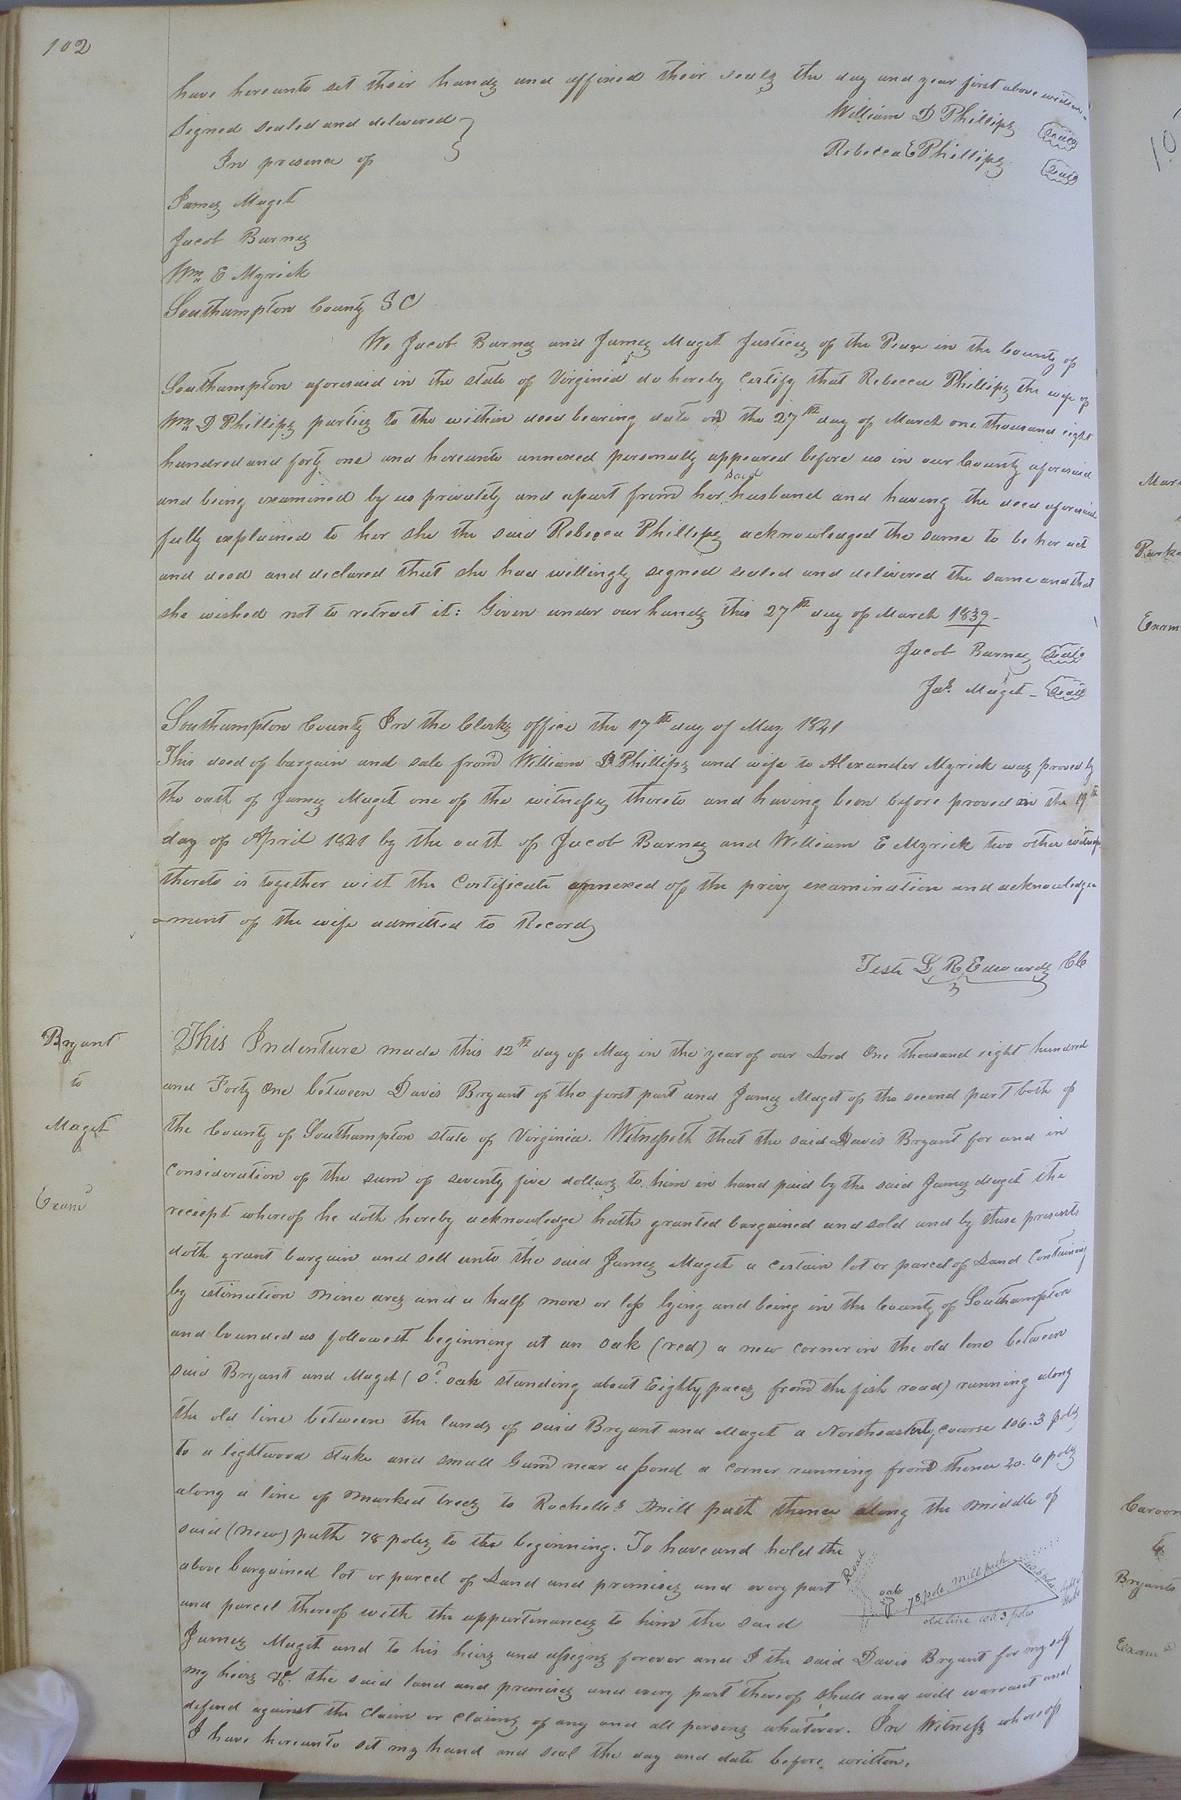 102
have hereunto set their hands and affixed their seals the day and year first above written -
Signed sealed and delivered } William D Phillips Seal
In presence of Rebecca E Phillips Seal
James Maget
Jacob Barnes
Wm. E Myrick
Southampton County S C
We Jacob Barnes and James Maget Justices of the Peace in the County of
Southampton aforesaid in the state of Virginia do hereby Certify that Rebecca Phillips the wife of
Wm D Phillips parties to the within deed bearing date on the 27th day of March one thousand eight
hundred and forty one and hereunto annexed personally appeared before us in our County aforesaid
and being examined by us privately and apart from her said husband and having the deed aforesaid
fully explained to her she the said Rebecca Phillips acknowledged the same to be her act
and deed and declared that she had willingly signed sealed and delivered the same and that
she wished not to retract it: Given under our hands this 27th day of March 1839 -
Jacob Barnes Seal
Jas. Maget - Seal
Southampton County In the Clerks office the 17th day of May 1841
This deed of bargain and sale from William D Phillips and wife to Alexander Myrick was proved by
the oath of James Maget one of the witnesses thereto and having been before proved in the 19th
day of April 1841 by the oath of Jacob Barnes and William E Myrick two other witnesses
thereto is together with the Certificate annexed of the privy examination and acknowledge
-ment of the wife admitted to Record
Teste L R Edwards CC
Bryant
to
Maget
Examd
This Indenture made this 12th day of May in the year of our Lord One thousand eight hundred
and Forty One between Davis Bryant of the first part and James Maget of the second part both of
the County of Southampton state of Virginia. Witnesseth that the said Davis Bryant for and in
Consideration of the sum of seventy five dollars to him in hand paid by the said James Maget the
reciept whereof he doth hereby acknowledge hath granted bargained and sold and by these presents
doth grant bargain and sell unto the said James Maget a certain lot or parcel of Land Containing
by estimation Nine acres and a half more or less lying and being in the County of Southampton
and bounded as followest beginning at an oak (red) a new corner in the old line between
said Bryant and Maget (sd. oak standing about Eighty paces from the fish road) running along
the old line between the lands of said Bryant and Maget a Northeasterly course 106.3 poles
to a lightwood stake and small Gum near a pond a corner running from thence 20.6 poles
along a line of marked trees to Rochelle's mill path thence along the middle of
said (new) path 78 poles to the beginning. To have and hold the
above bargained lot or parcel of Land and premises and every part
and parcel thereof with the appurtenances to him the said
Road
oak
78 pole mill path
old line 106.3 poles
James Maget and to his heirs and assigns forever and I the said Davis Bryant for myself
my heirs &c. the said land and premises and every part thereof shall and will warrant and
defend against the Claim or Claims of any and all persons whatever. In Witness whereof
I have hereunto set my hand and seal the day and date before written.
Exam
Bryants
Exam